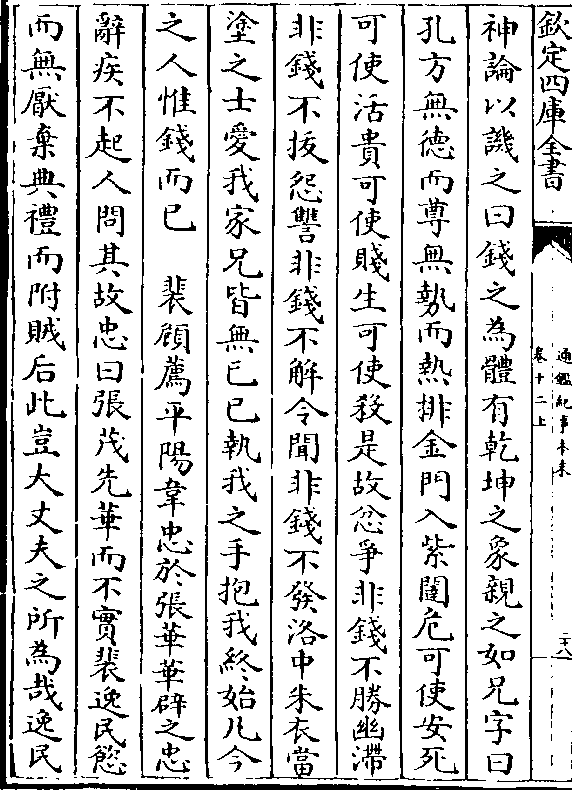 欽定四庫全書
通鑑紀事本末
卷十二上
二十八
神論以譏之曰錢之為體有乾坤之象親之如兄字曰
孔方無德而尊無勢而熱排金門入紫闥危可使安死
可使活貴可使賤生可使殺是故忿爭非錢不勝幽滯
非錢不拔怨讐非錢不解令聞非錢不發洛中朱衣當
塗之士愛我家兄皆無已已執我之手抱我終始凡今
之人惟錢而已　裴頠薦平陽韋忠於張華華辟之忠
辭疾不起人問其故忠曰張茂先華而不實裴逸民慾
而無厭棄典禮而附賊后此豈大丈夫之所為哉逸民